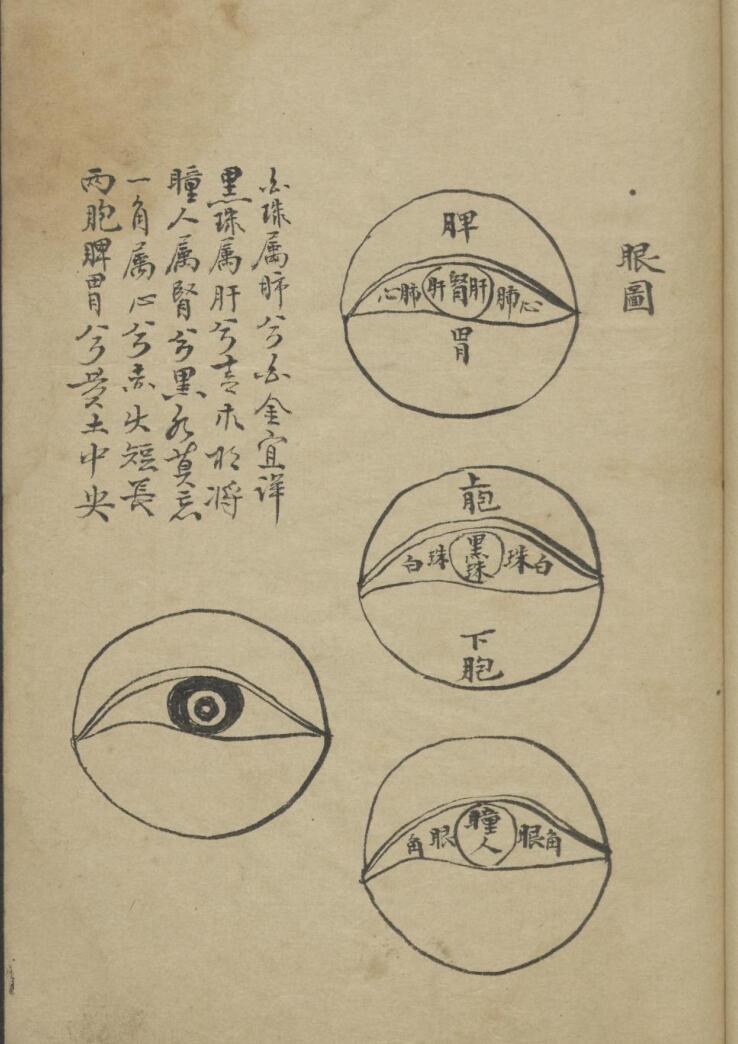 眼圖
脾
心肺肝腎肝肺心
胃
上胞
白珠黑珠珠白
下胞
角眼瞳人眼角
白珠属肺兮白金宜詳
黑珠属肝兮青木将
瞳人属腎兮黑水莫忘
一角属心兮赤火短長
两胞脾胃兮黄土中央